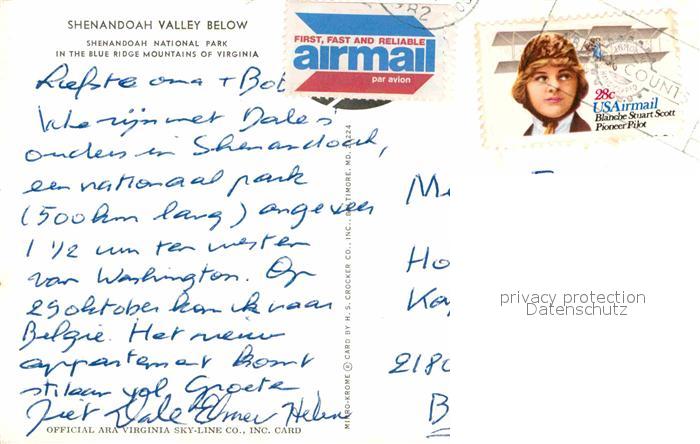 SHENANDOAH VALLEY BELOW
SHENANDOAH NATIONAL PARK
IN THE BLUE RIDGE MOUNTAINS OF VIRGINIA
Liefste oma + Bob
We zijn met Dale's
ouders in Shenandoah,
een nationaal park
(500 km lang) ongeveer
1 1/2 uur ten westen
van Washington. Op
29 oktober kom ik naar
België. Het nieuw
appartement komt
stilaan vol. Groeten
Jiet Dale Elmer Helene
OFFICIAL ARA VIRGINIA SKY-LINE CO., INC. CARD
MIKRO-KROME ® CARD BY H. S. CROCKER CO., INC., BALTIMORE, MD. 21224
FIRST, FAST AND RELIABLE
airmail
par avion
28c
USAirmail
Blanche Stuart Scott
Pioneer Pilot
COUNT
M
Ho
Ka
2180
B
privacy protection
Datenschutz